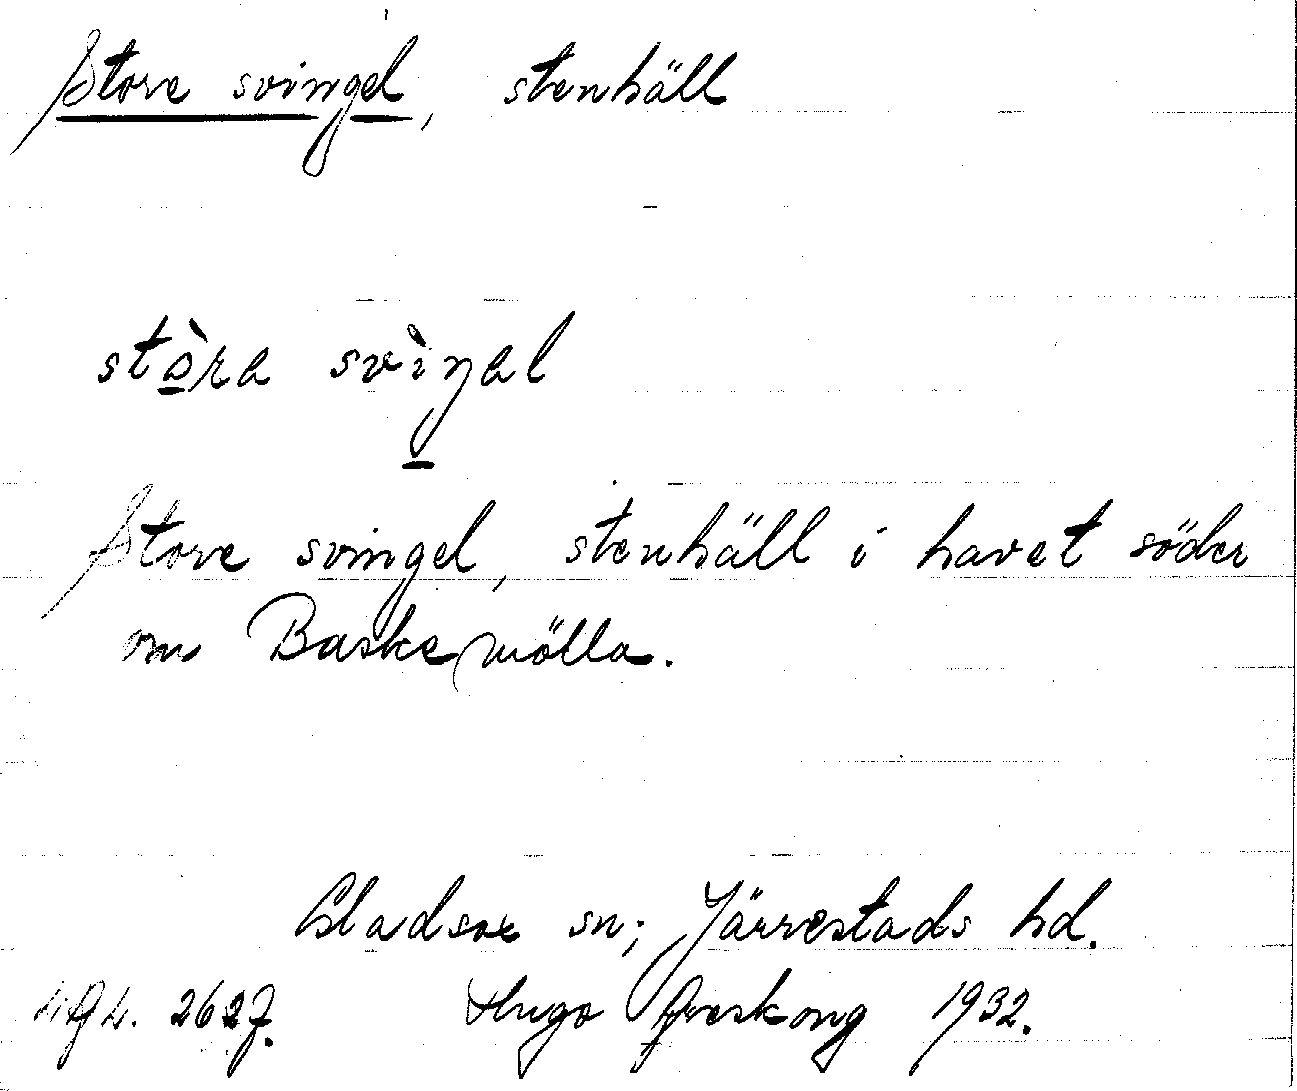 Store svingel, stenhäll
stòra svìŋal
Store svingel, stenhäll i havet söder
om Baskemölla.
Gladsax sn; Järrestads hd.
2627. Hugo Areskoug 1932.